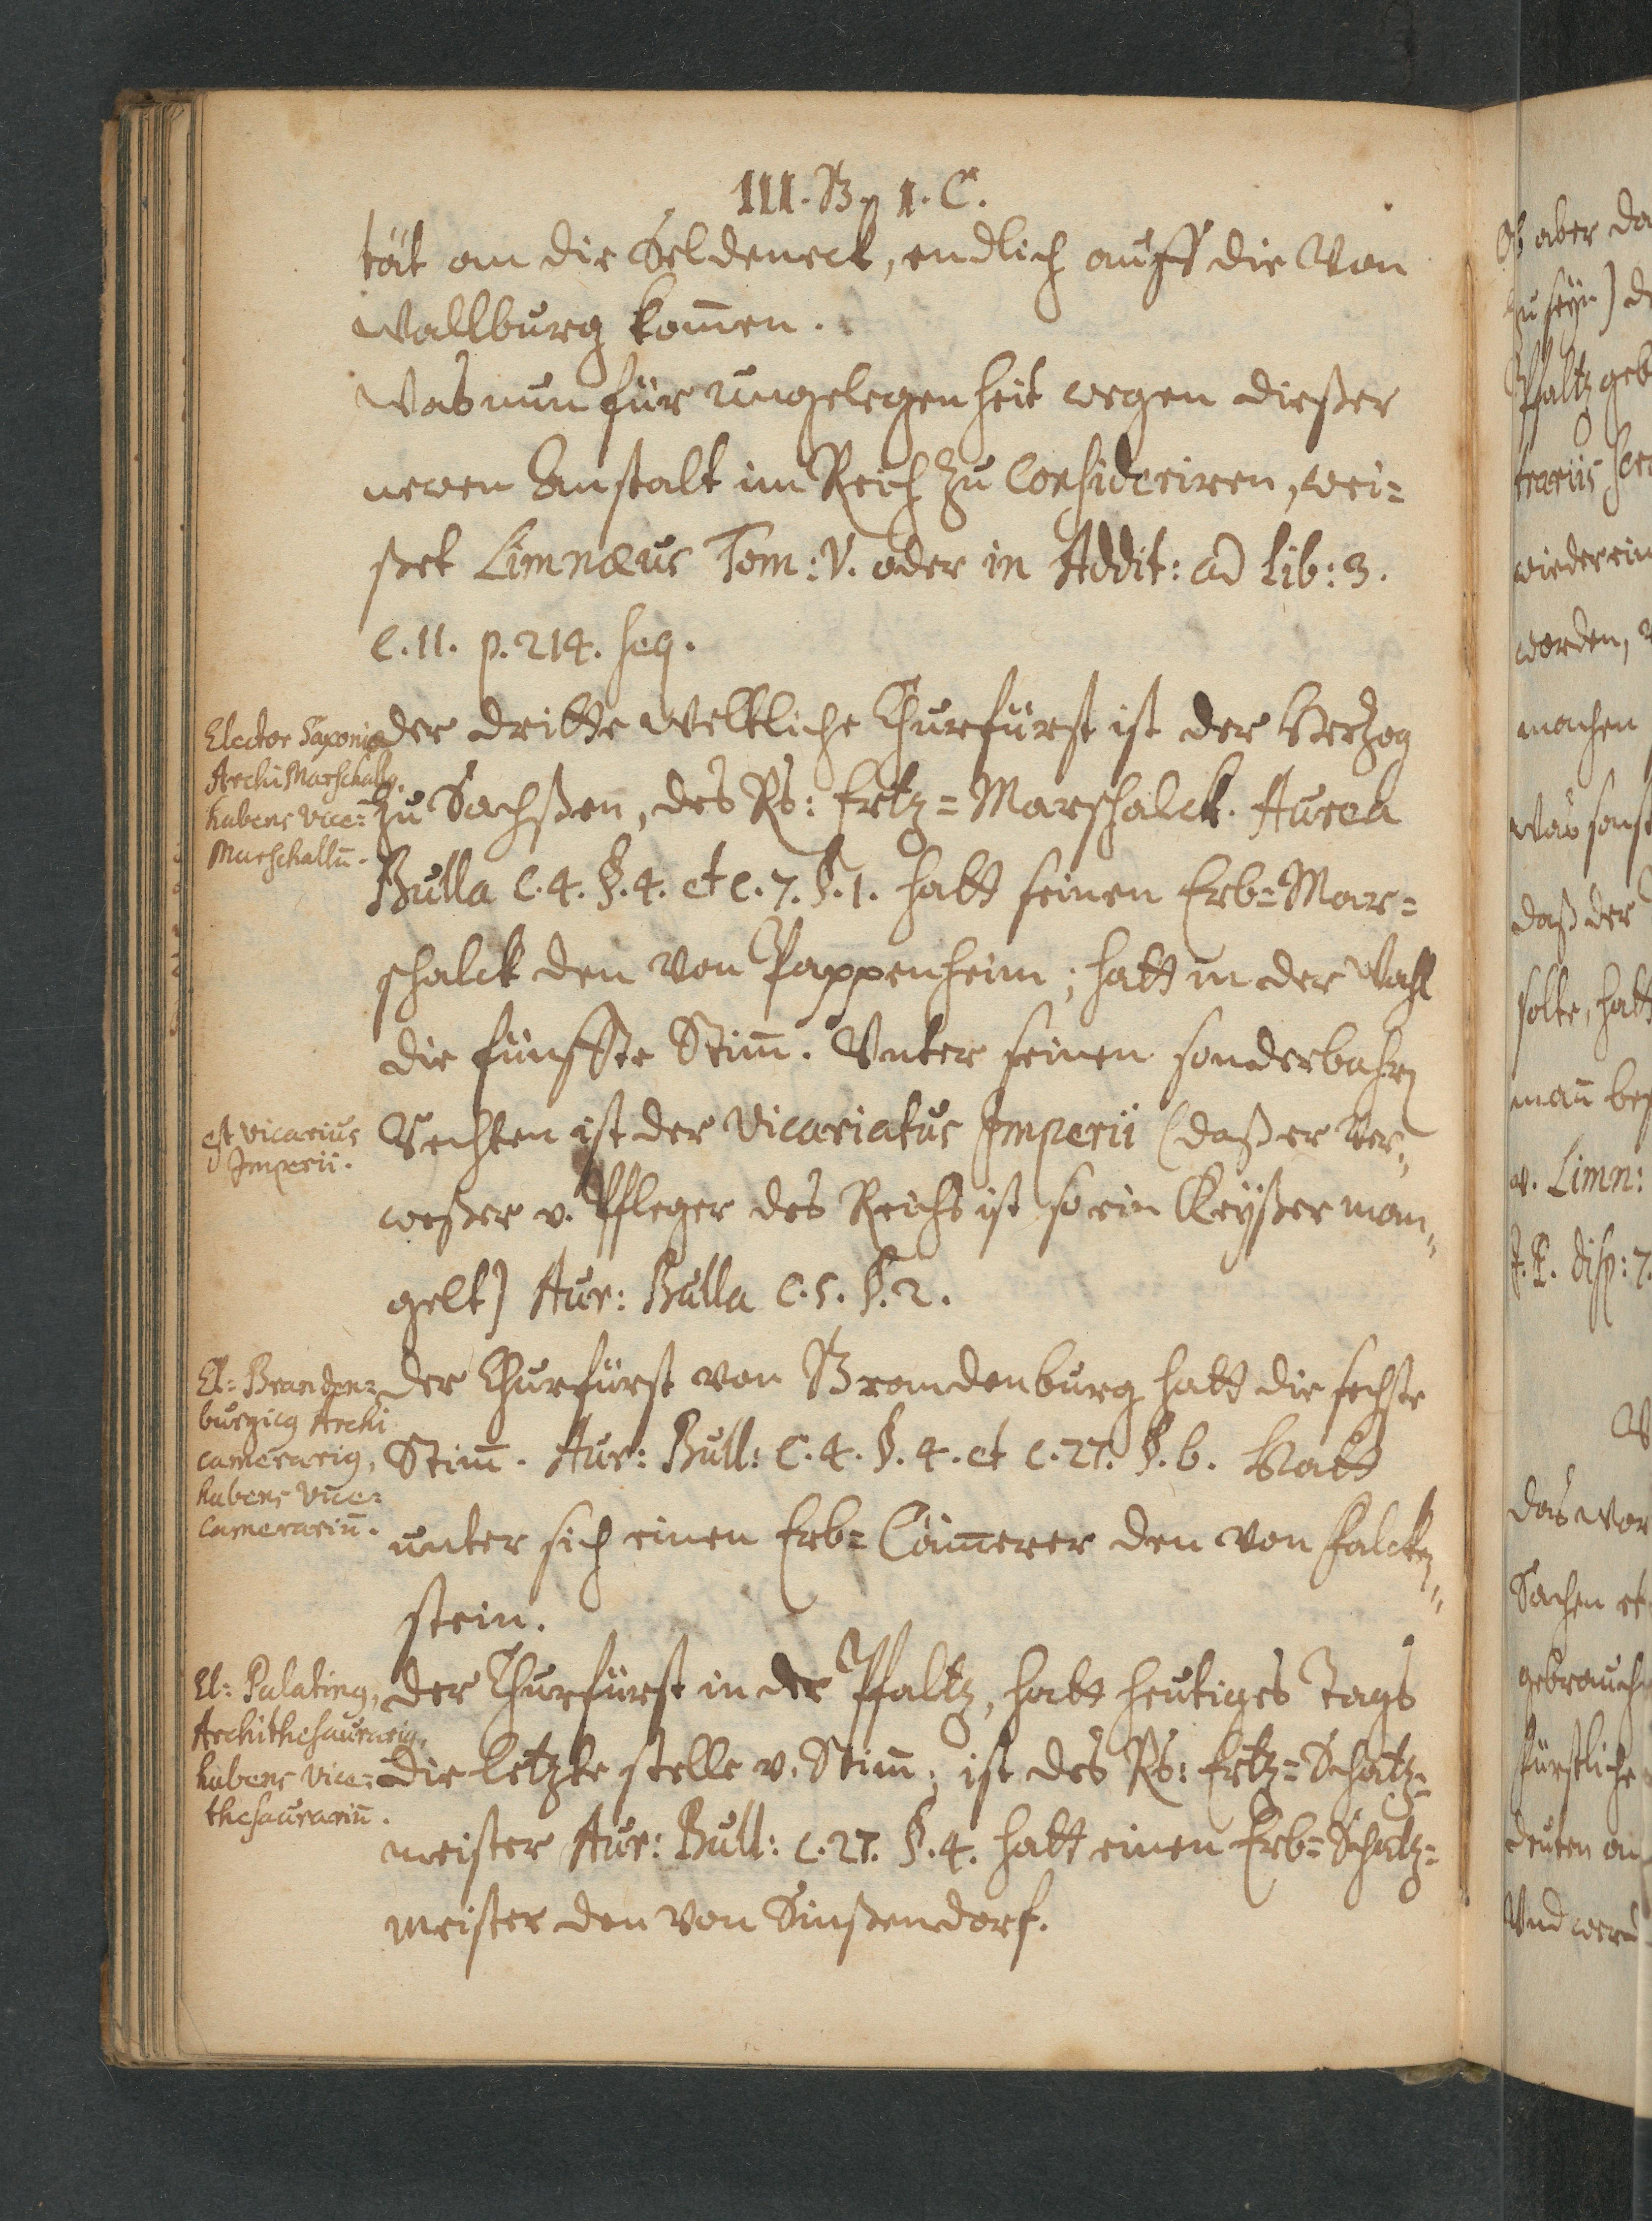 III. B. 1. C.
tät an die Seldeneck, endlich auff die Von
Wallburg kom̄en.
Was nun für ungelegenheit wegen dießer
newen Anstalt im Reich zu Consideriren, wei=
ßet Limnæus Tom: V. oder in Addit: ad lib: 3.
c. 11. p. 214. seq.
Elector Saxoniæ
Archi Marschallq,
habens vice=
Marschallū.
der dritte weltliche Churfürst ist der Hertzog
zu Sachßen, des Rs: Ertz=Marschalck. Aurea
Bulla c. 4. §. 4. et c. 7. §. 1. hatt seinen Erb=Mar=
schalck den von Pappenheim; hatt in der Wahl
die fünffte Stim̄. Unter seinen sonderbahrn
est vicarius
Imperii.
Rechten ist der Vicariatus Imperii (daß er Ver=
weßer v. Pfleger des Reichs ist so ein Keyßer man=
gelt) Aur: Bulla c. 5. §. 2.
El: Branden=
burgicq Archi
camerariq,
habens vice=
camerariū.
der Churfürst von Brandenburg hatt die sechste
Stim̄. Aur: Bull: c. 4. §. 4. et c. 27. §. 6. Hatt
unter sich einen Erb=Cäm̄erer den von Falcken=
stein.
El: Palatinq,
Archithesaurariq,
habens vice=
thesaurariū.
der Churfürst in der Pfaltz, hatt heutiges Tags
die letzte stelle v. Stim̄; ist des Rs: Ertz=Schatz=
meister Aur: Bull: c. 27. §. 4. hatt einen Erb=Schatz=
meister den von Sinßendorf.
Ob aber
zu seyn)
Pfaltz
wieder
worden,
machen
was sonst
daß der
solte, hatt
man̄
v. Limn:
disp: 7.
das
Sachen
fürstliche
deuten
Und